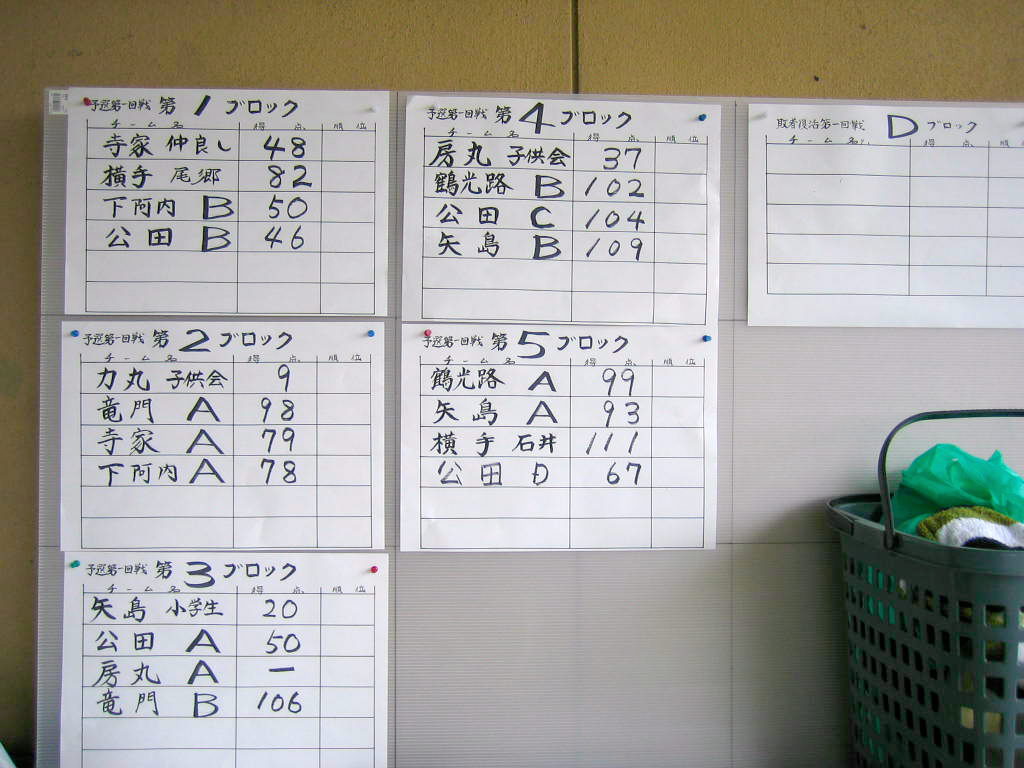 予選第一回戦 第1ブロック
チーム名 得点 順位
寺家 仲良し 48
横手 尾郷 82
下阿内 B 50
公田 B 46
予選第一回戦 第2ブロック
チーム名 得点 順位
力丸 子供会 9
竜門 A 98
寺家 A 79
下阿内 A 78
予選第一回戦 第3ブロック
チーム名 得点 順位
矢島 小学生 20
公田 A 50
房丸 A ー
竜門 B 106
予選第一回戦 第4ブロック
チーム名 得点 順位
房丸 子供会 37
鶴光路 B 102
公田 C 104
矢島 B 109
予選第一回戦 第5ブロック
チーム名 得点 順位
鶴光路 A 99
矢島 A 93
横手 石井 111
公田 D 67
敗者復活第一回戦 Dブロック
チーム名 得点 順位